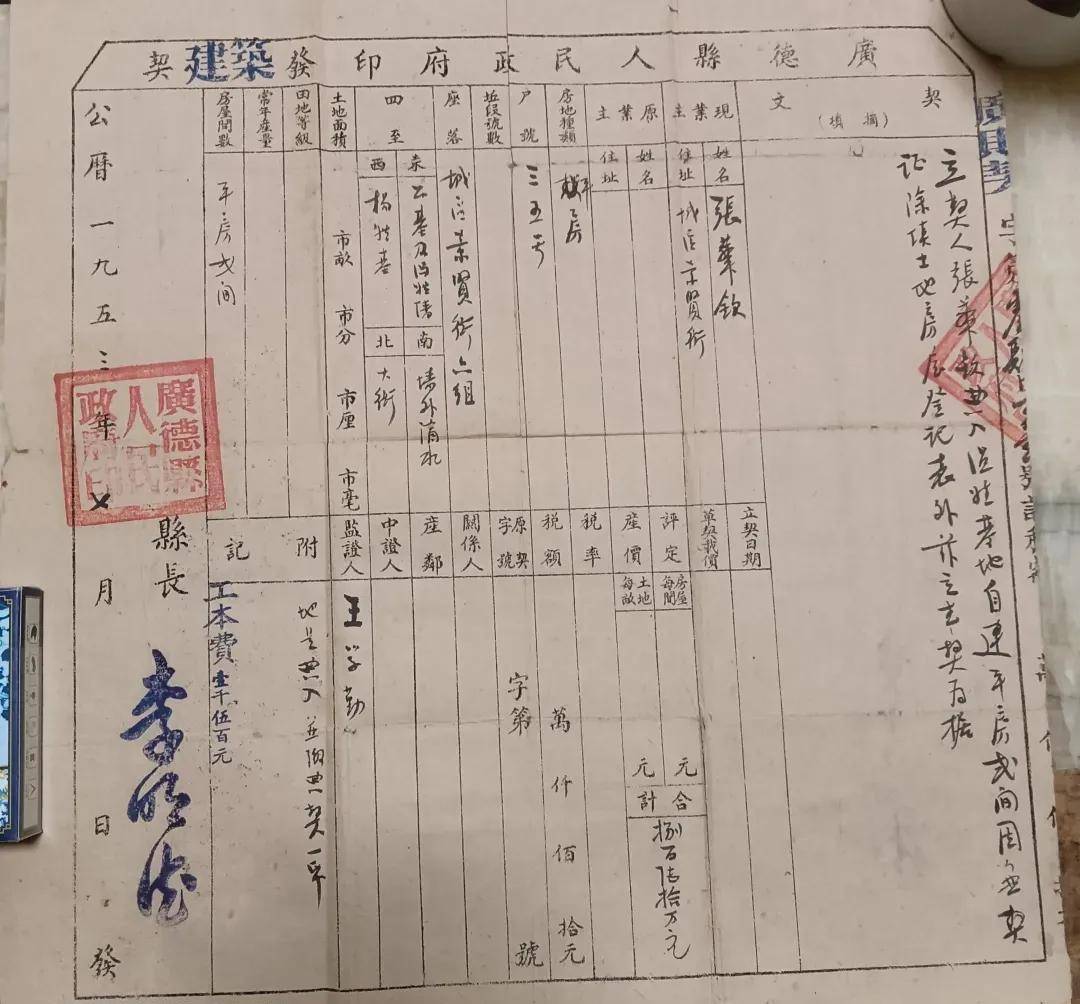 廣德縣人民政府印發建築契
契文
(摘填)
立契人張華欽典入
姓基地自建平房弍間因無契
証除填土地房屋登記表外
立
契为據
現業主
姓名
張華欽
住址
城區景賢街
原業主
姓名
住址
房地種類
平房
户號
三五号
坵段號數
座落
城區景賢街六組
四至
東
公基及
南
墻外滴水
西
楊姓基
北
大街
土地面積
市畝
市分
市厘
市毫
田地等級
常年產量
房屋間數
平房弍間
立契日期
草契我價
評定產價
房屋每間
元
土地每畝
元
合計
捌百陆拾万元
稅率
稅額
萬仟佰拾元
原契字號
字第
號
關係人
產鄰
中證人
監證人
王学勤
附記
地是典入並附典契一
工本費壹千伍百元
縣長
公曆一九五三年
月
日
發
廣德縣人民政府印